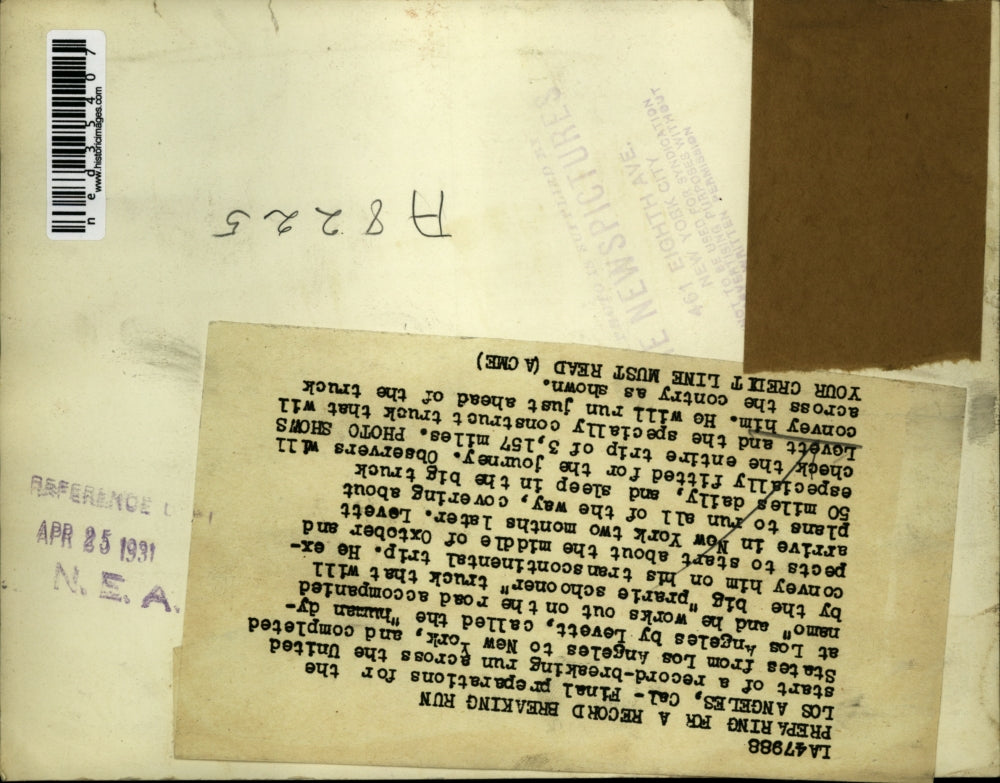 LA47988
PREPARING FOR A RECORD BREAKING RUN
LOS ANGELES, Cal- Final preparations for the
start of a record-breaking run across the United
States from Los Angeles to New York, and completed
at Los Angeles by Levett, called the "human dy-
namo" and he works out on the road accompanied
by the big "prarie schooner" truck that will
convey him on his transcontinental trip. He ex-
pects to start about the middle of October and
arrive in New York two months later. Levett
plans to run all of the way, covering about
50 miles daily, and sleep in the big truck
especially fitted for the journey. Observers will
check the entire trip of 3,157 miles. PHOTO SHOWS
Levett and the specially construct truck that will
convey him. He will run just ahead of the truck
across the contry as shown.
YOUR CREDIT LINE MUST READ (ACME)
A8225
NEWSPICTURES
461 EIGHTH AVE.
NEW YORK CITY
BE USED FOR SYNDICATION
PURPOSES WITHOUT
WRITTEN PERMISSION
REFERENCE
APR 25 1931
N. E. A.
ned35407
www.historicimages.com